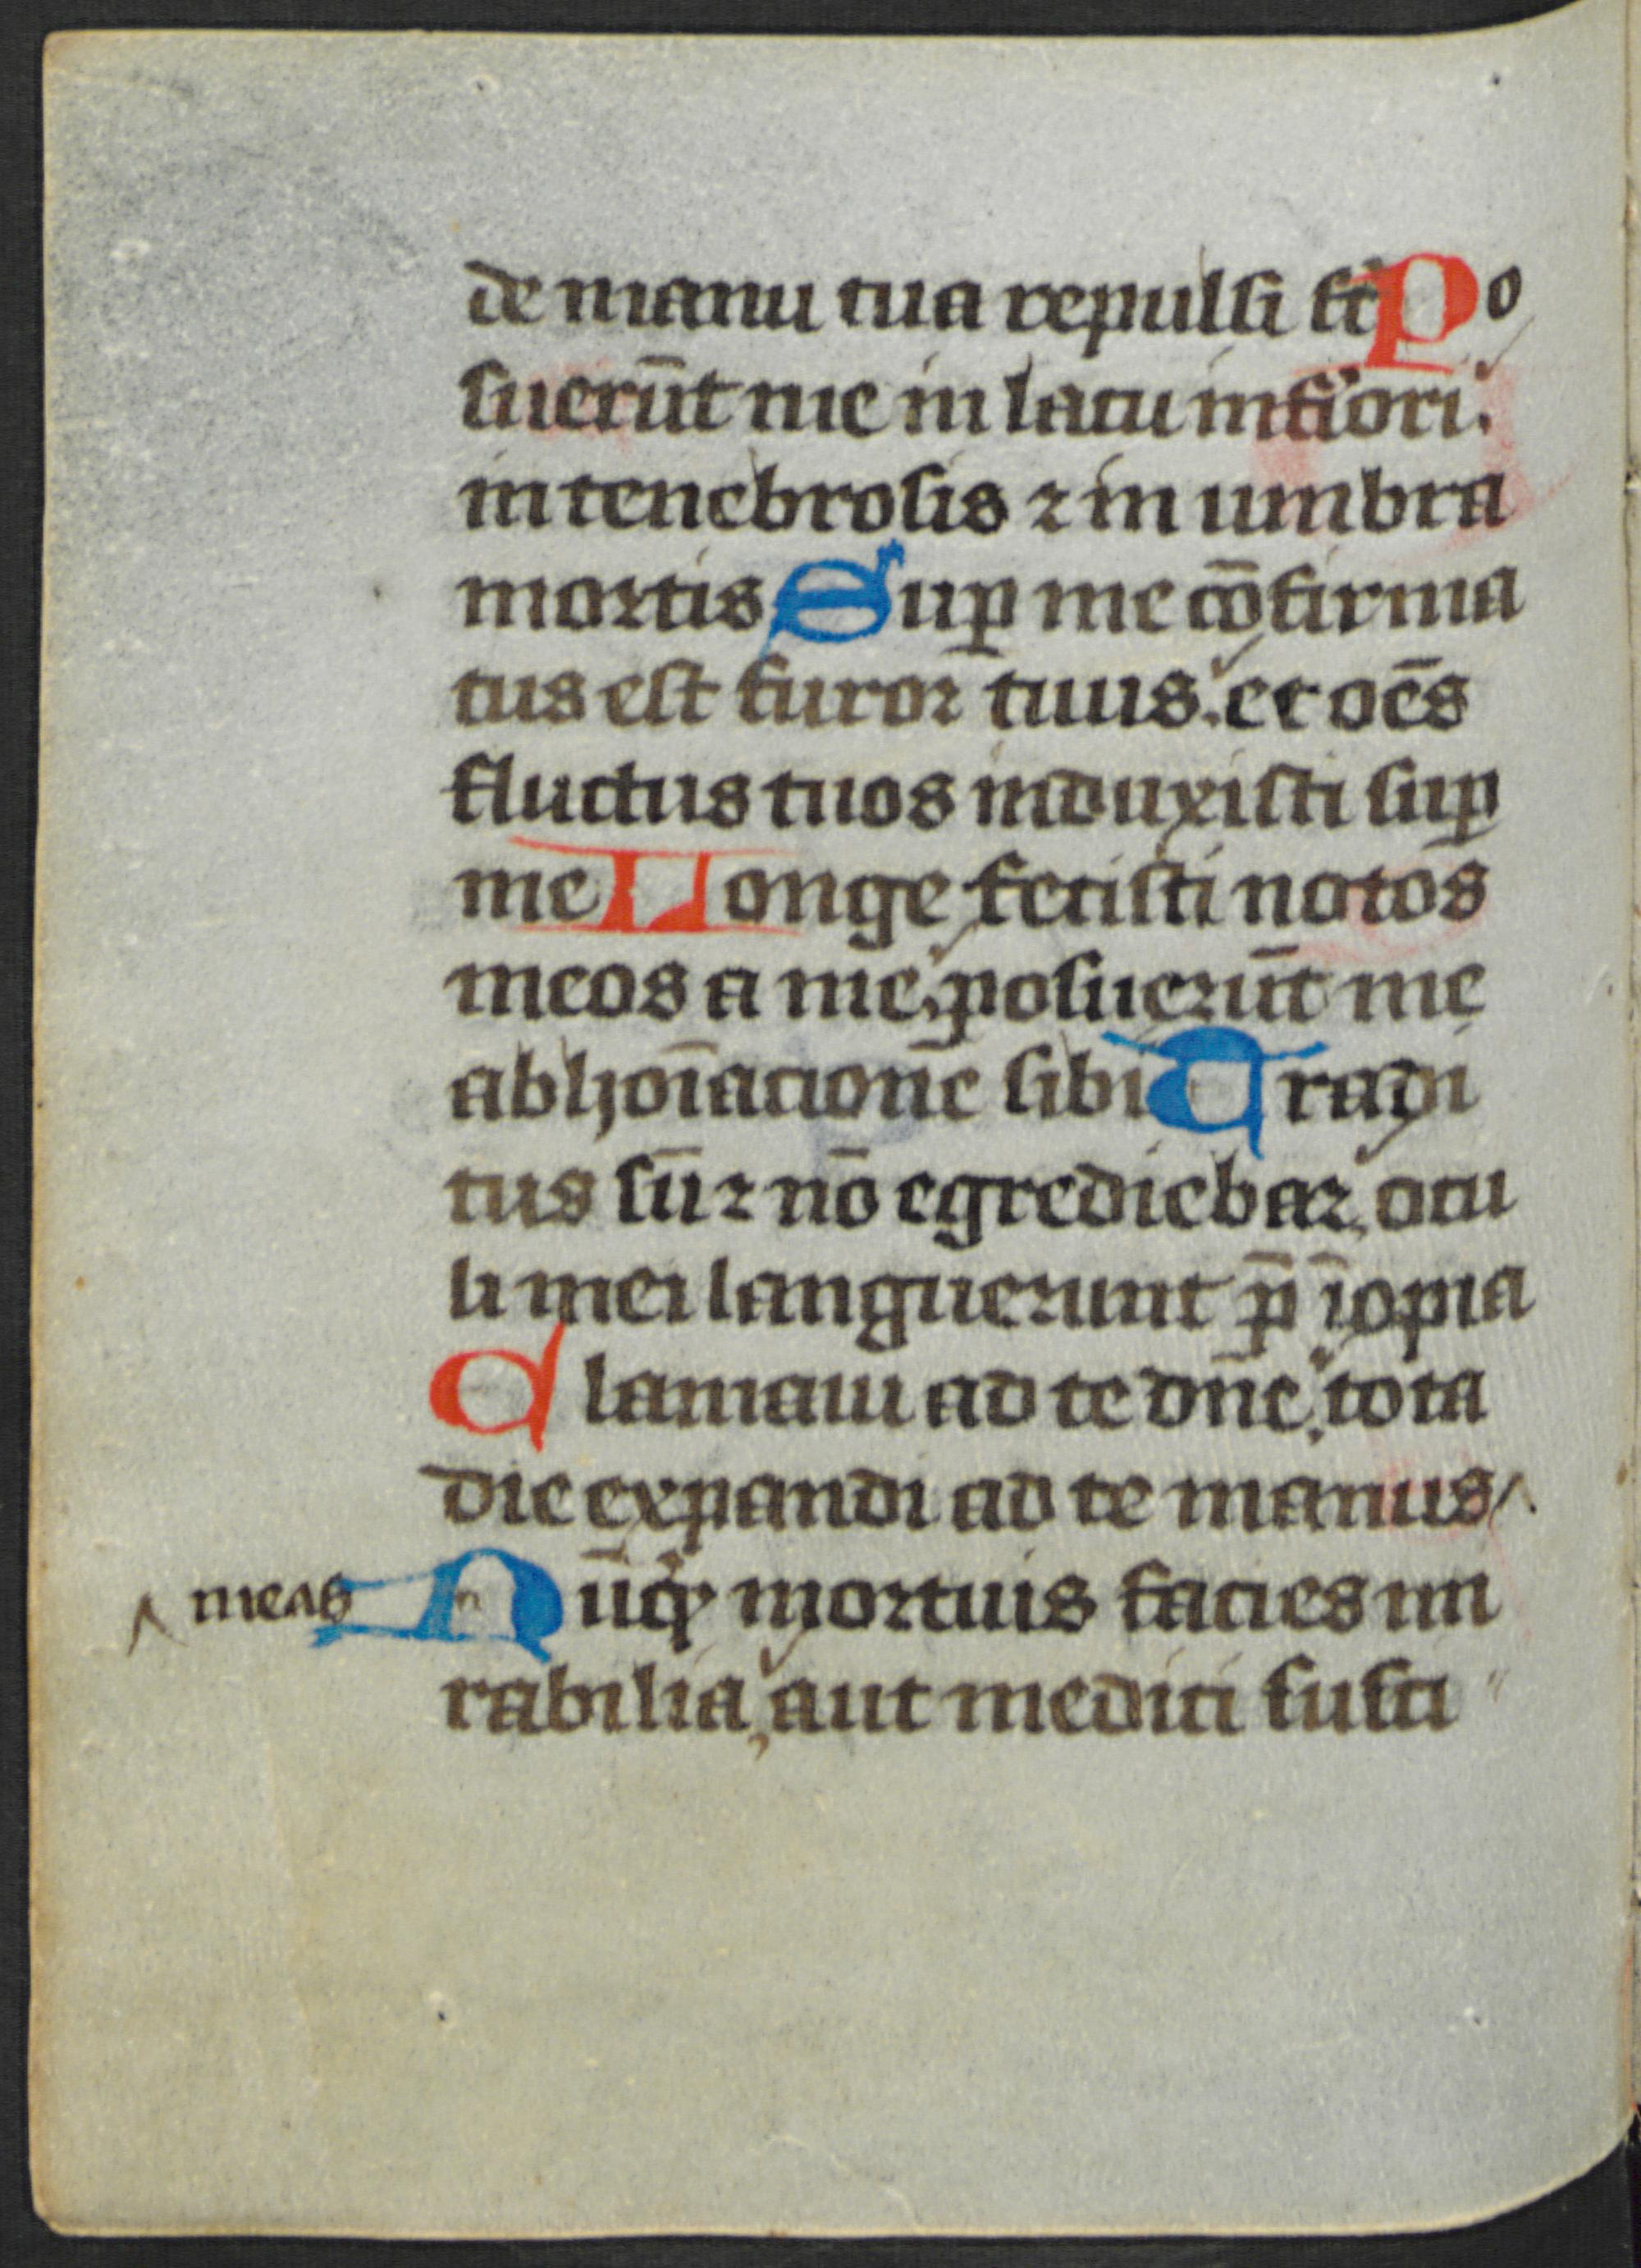 de manu tua repulsi st̄ Po
suerūt me in lacu inf̄iori.
in tenebrosis ⁊ in umbra
mortis Suꝑ me cōfirma
tus est furor tuus. et oēs
fluctus tuos induxisti suꝑ
me Longe fecisti notos
meos a me, posuerūt me
abhoīacionē sibi Tradi
tus sū ⁊ nō egrediebar, ocu
li mei languerunt p̄ īopia
Clamaui ad te dn̄e, tota
die expandi ad te manus ^
^ meas Nūqͥd mortuis facies mi
rabilia, aut medici susci〃